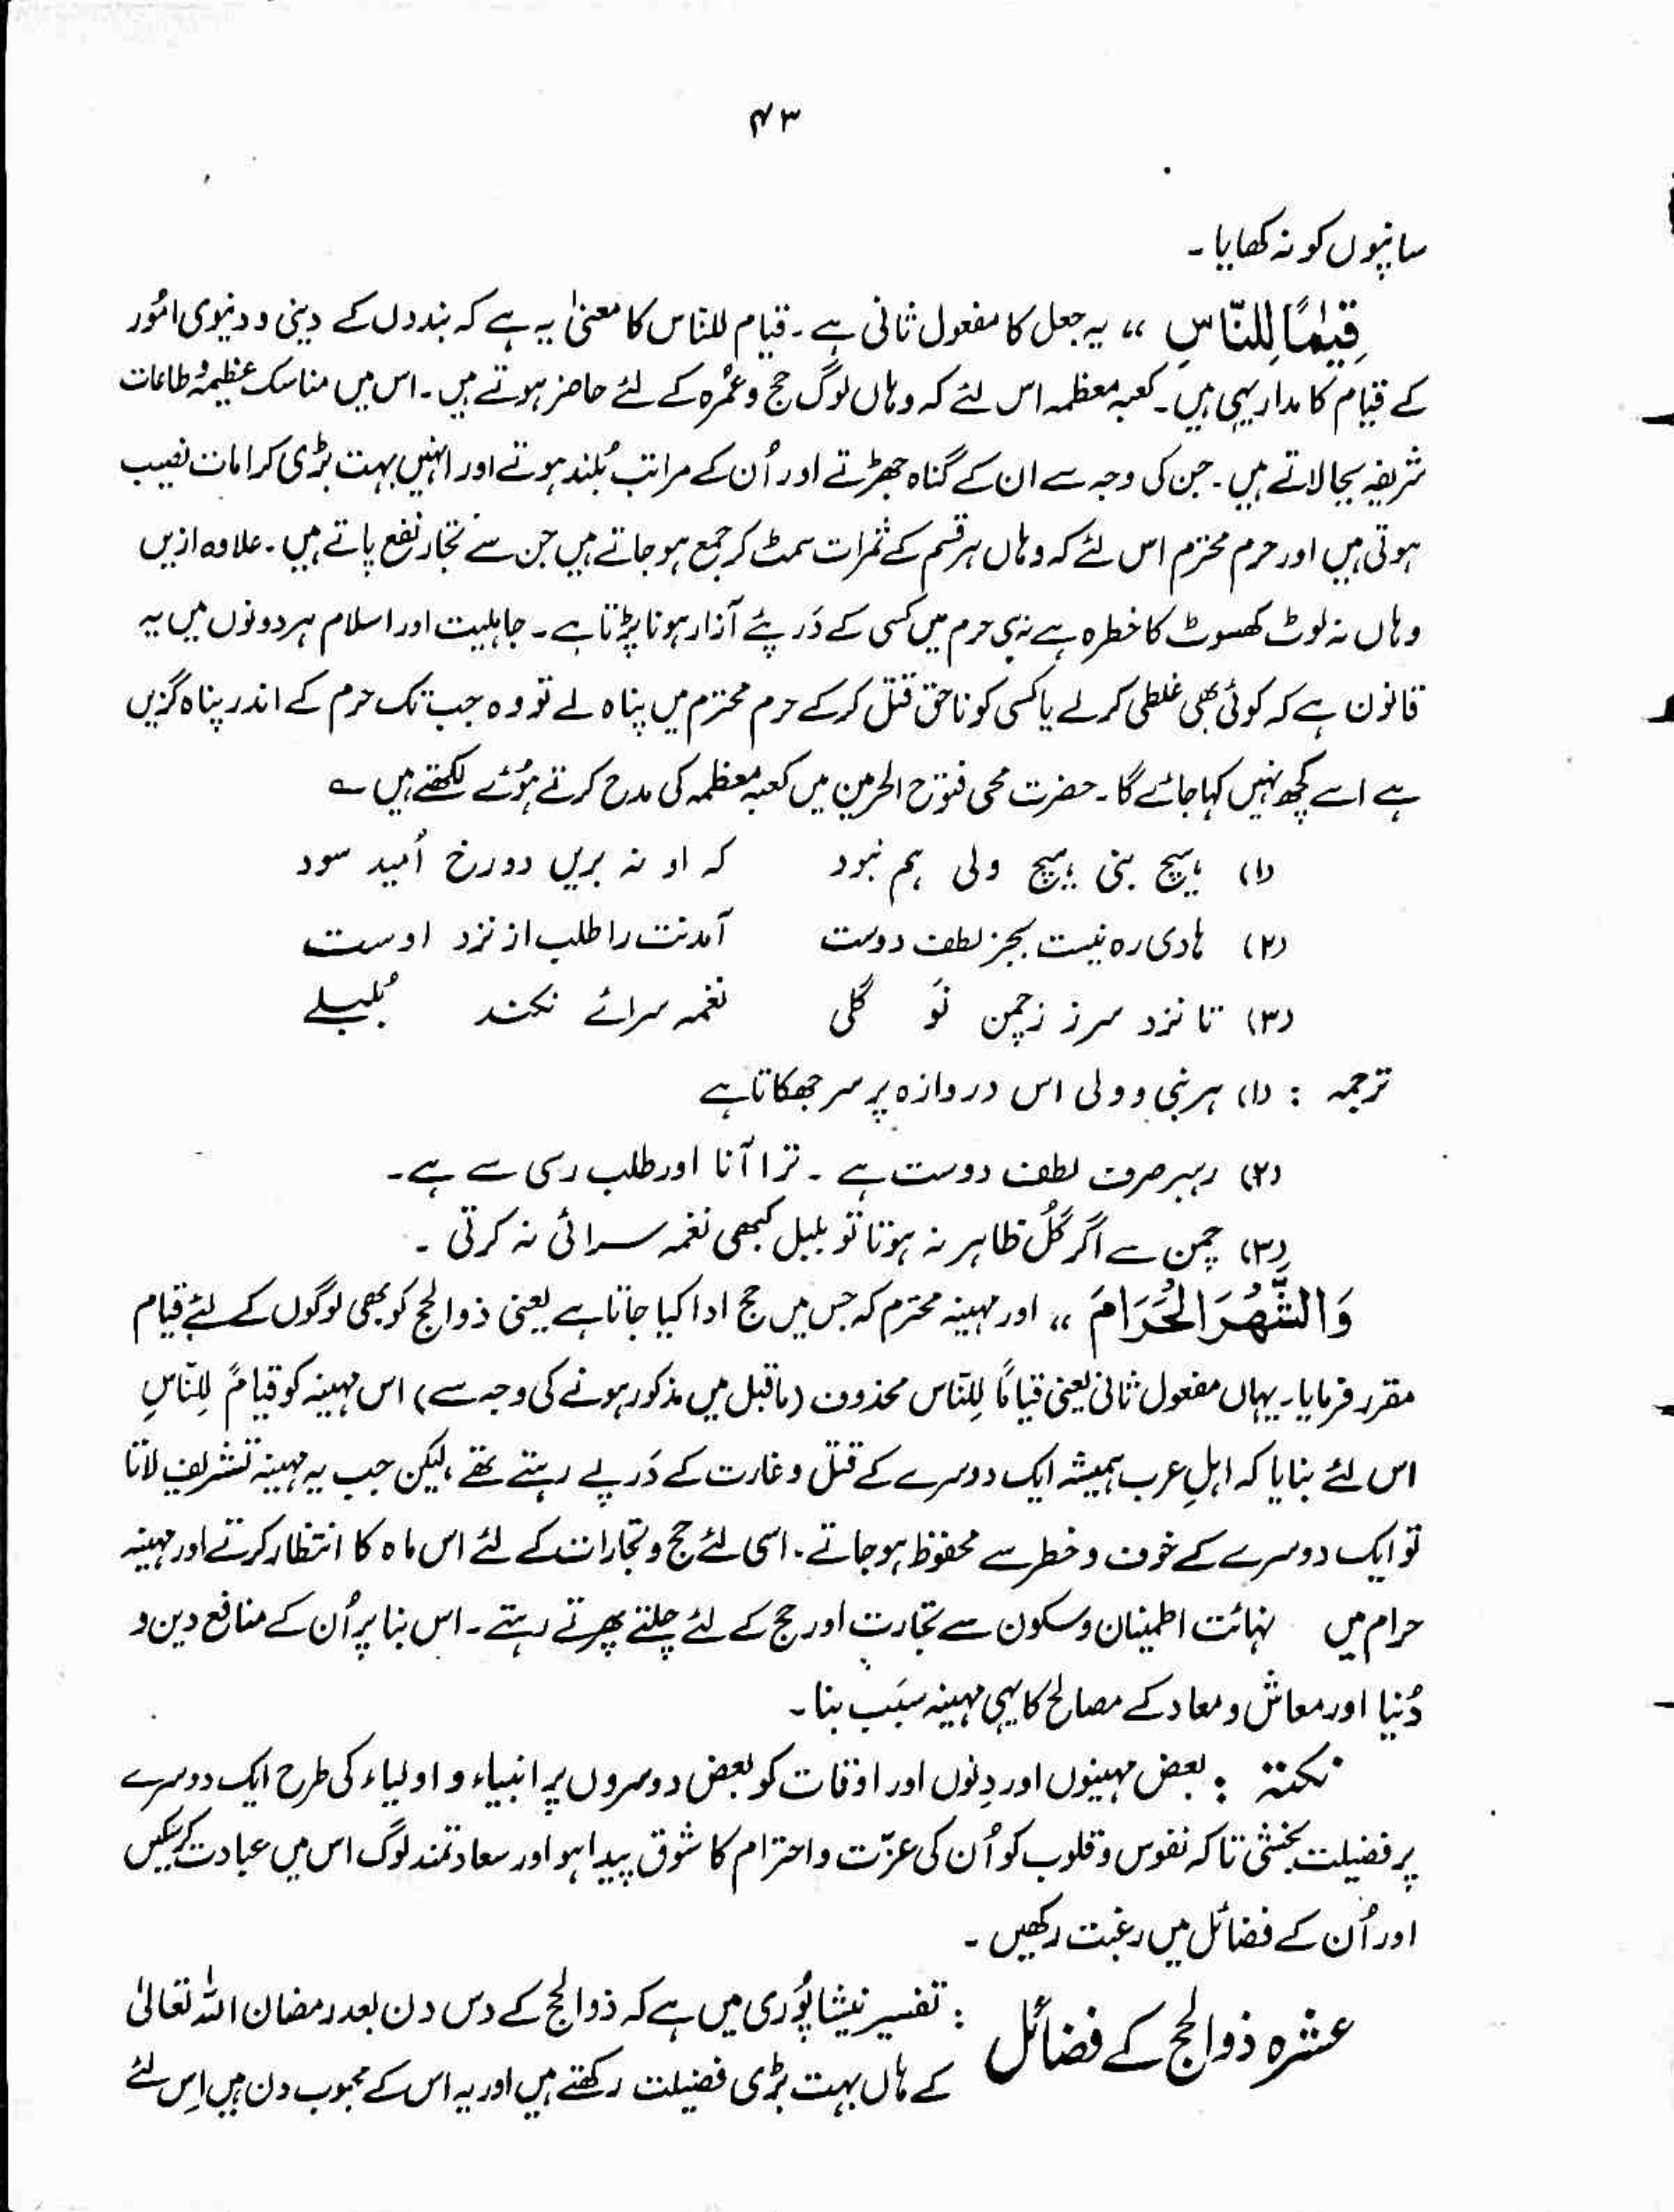 ۴۳
سانپوں کو نہ کھایا۔
قِیٰمًا لِّلنَّاسِ ،، یہ جعل کا مفعول ثانی ہے۔ قیام للناس کا معنیٰ یہ ہے کہ بندوں کے دینی و دنیوی امُور
کے قیام کا مدار یہی ہیں۔ کعبہ معظمہ اس لئے کہ وہاں لوگ حج و عمُرہ کے لئے حاضر ہوتے ہیں۔ اس میں مناسک عظیمہ و طاعات
شریفہ بجا لاتے ہیں۔ جن کی وجہ سے ان کے گناہ جھڑتے اور اُن کے مراتب بُلند ہوتے اور انہیں بہت بڑی کرامات نصیب
ہوتی ہیں اور حرم محترم اس لئے کہ وہاں ہر قسم کے ثمرات سمٹ کر جمع ہو جاتے ہیں جن سے تجار نفع پاتے ہیں۔ علاوہ ازیں
وہاں نہ لوٹ کھسوٹ کا خطرہ ہے نہ ہی حرم میں کسی کے دَرپئے آزار ہونا پڑتا ہے۔ جاہلیت اور اسلام ہر دونوں میں یہ
قانون ہے کہ کوئی بھی غلطی کر لے یا کسی کو ناحق قتل کر کے حرم محترم میں پناہ لے تو وہ جب تک حرم کے اندر پناہ گزیں
ہے اسے کچھ نہیں کہا جائے گا۔ حضرت محی فتوح الحرمین میں کعبہ معظمہ کی مدح کرتے ہوُئے لکھتے ہیں ؎
(۱) ہیچ بنی ہیچ ولی ہم نبود کہ او نہ بریں دورخ اُمید سود
(۲) ہادی رہ نیست بجز لطف دوست آمدنت را طلب از نزد اوست
(۳) تا نزد سرز زچمن نَو گلی نغمہ سرائے نکند بُلبلے
ترجمہ : (۱) ہر نبی و ولی اس دروازہ پر سر جھکاتا ہے
(۲) رہبر صرف لطف دوست ہے۔ ترا آنا اور طلب رسی سے ہے۔
(۳) چمن سے اگر گلُ ظاہر نہ ہوتا تو بلبل کبھی نغمہ سرائی نہ کرتی۔
وَالشَّھْرَ الْحَرَامَ ،، اور مہینہ محترم کہ جس میں حج ادا کیا جاتا ہے یعنی ذوالحج کو بھی لوگوں کے لئے قیام
مقرر فرمایا۔ یہاں مفعول ثانی یعنی قیامًا لِلنّاس محذوف (ماقبل میں مذکور ہونے کی وجہ سے) اس مہینہ کو قیامً لِلنّاسِ
اس لئے بنایا کہ اہلِ عرب ہمیشہ ایک دوسرے کے قتل و غارت کے دَرپے رہتے تھے، لیکن جب یہ مہینہ تشریف لاتا
تو ایک دوسرے کے خوف و خطر سے محفوظ ہو جاتے۔ اسی لئے حج و تجارات کے لئے اس ماہ کا انتظار کرتے اور مہینہ
حرام میں نہائت اطمینان و سکون سے تجارت اور حج کے لئے چلتے پھرتے رہتے۔ اس بنا پر اُن کے منافع دین و
دُنیا اور معاش و معاد کے مصالح کا یہی مہینہ سبَب بنا۔
نکتہ : بعض مہینوں اور دِنوں اور اوقات کو بعض دوسروں پر انبیاء و اولیاء کی طرح ایک دوسرے
پر فضیلت بخشی تاکہ نفوس و قلوب کو اُن کی عزّت و احترام کا شوق پیدا ہو اور سعادتمند لوگ اس میں عبادت کر سکیں
اور اُن کے فضائل میں رغبت رکھیں۔
عشرہ ذوالحج کے فضائل : تفسیر نیشاپُوری میں ہے کہ ذوالحج کے دس دن بعد رمضان اللہ تعالیٰ
کے ہاں بہت بڑی فضیلت رکھتے ہیں اور یہ اس کے محبوب دن ہیں اِس لئے